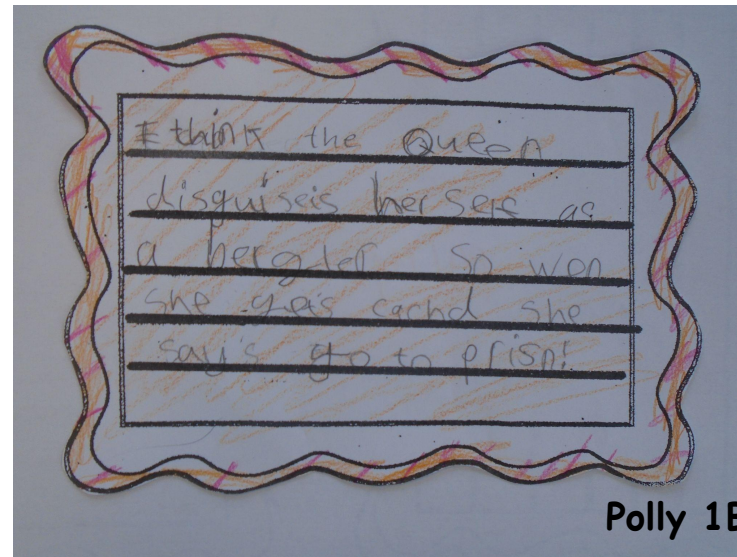 I think the Queen
disguiseis her self as
a bergler so wen
she gets cachd she
say's go to prisn!
Polly 1B